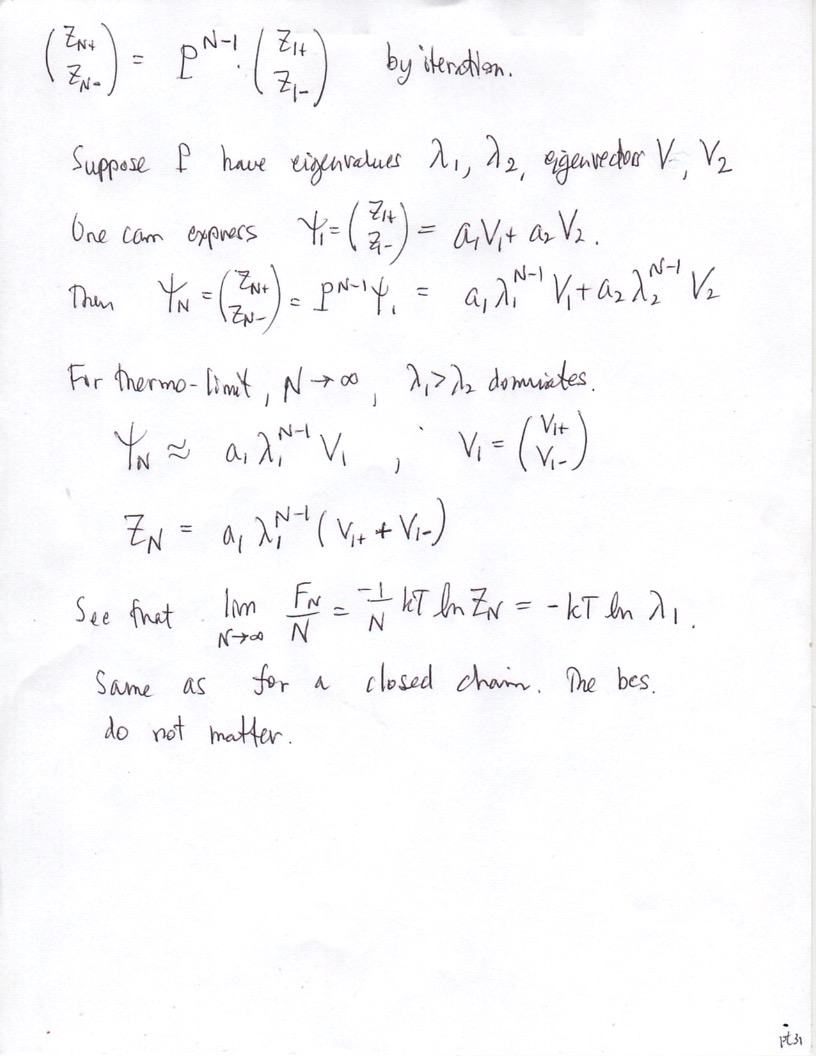 (Z_{N+} Z_{N-}) = P^{N-1} · (Z_{1+} Z_{1-}) by iteration.
Suppose P have eigenvalues λ₁, λ₂, eigenvectors V₁, V₂
One can express Ψ₁ = (Z_{1+} Z_{1-}) = a₁V₁ + a₂V₂.
Then Ψ_N = (Z_{N+} Z_{N-}) = P^{N-1}Ψ₁ = a₁λ₁^{N-1}V₁ + a₂λ₂^{N-1}V₂
For thermo-limit, N→∞, λ₁>λ₂ dominates.
Ψ_N ≈ a₁λ₁^{N-1}V₁ , V₁ = (V_{1+} V_{1-})
Z_N = a₁λ₁^{N-1}(V_{1+} + V_{1-})
See that lim_{N→∞} F_N/N = -1/N kT ln Z_N = -kT ln λ₁.
Same as for a closed chain. The bcs.
do not matter.
pt31